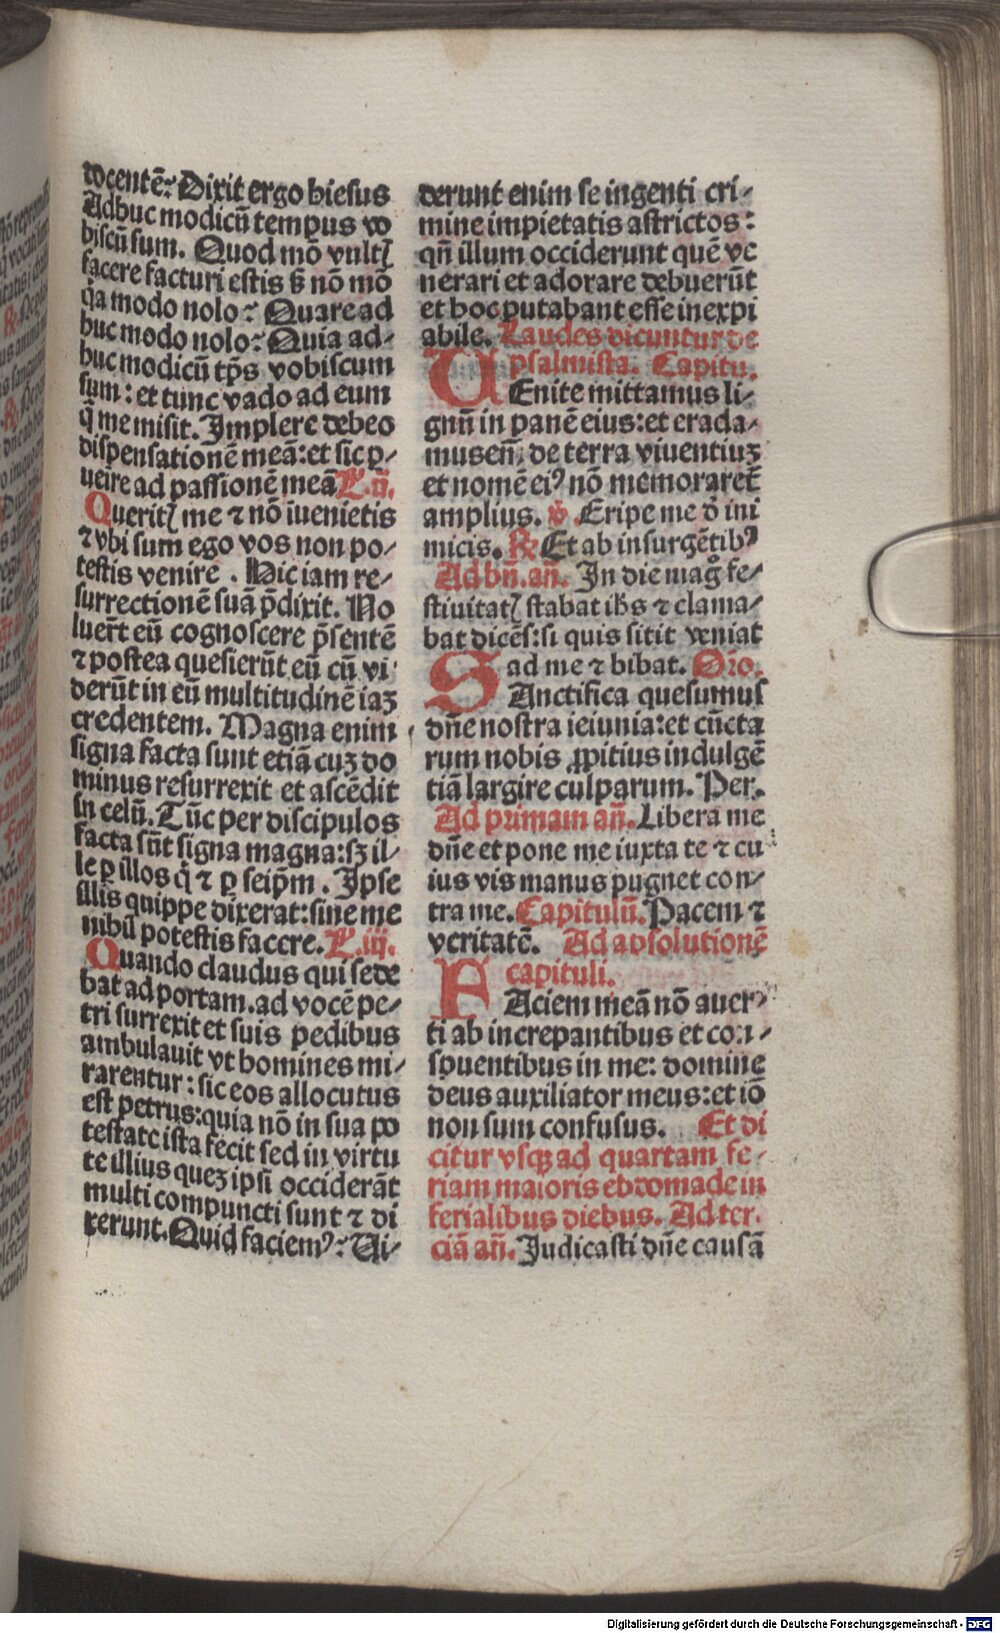 docentē? Dixit ergo hiesus
Adhuc modicū tempus vo
biscū sum. Quod mō vultꝭ
facere facturi estis ß nō mō
q̇a modo nolo? Quare ad
huc modo nolo? Quia ad-
huc modicū tp̄s vobiscum
sum: et tunc vado ad eum
q̄ me misit. Implere debeo
dispensationē meā: et sic ꝑ-
ueire ad passionē meā L. ij.
Queritꝭ me ⁊ nō iuenietis
⁊ vbi sum ego vos non po-
testis venire. Hic iam re-
surrectionē suā p̄dixit. No
luer̄t eū cognoscere p̄sentē
⁊ postea quesierūt eū cū vi
derūt in eū multitudinē iaꝫ
credentem. Magna enim
signa facta sunt etiā cuꝫ do
minus resurrexit et ascēdit
in celū. Tūc per discipulos
facta sūt signa magna: sꝫ il-
le ꝑ illos q̇ ⁊ ꝑ seip̄m. Ipse
illis quippe dixerat: sine me
nihil potestis facere. L. iij.
Quando claudus qui sede
bat ad portam. ad vocē pe-
tri surrexit et suis pedibus
ambulauit vt homines mi-
rarentur: sic eos allocutus
est petrus: quia nō in sua po
testate ista fecit sed in virtu
te illius queꝫ ipsi occiderāt
multi compuncti sunt ⁊ di
xerunt. Quid faciemꝰ? Ui-
derunt enim se ingenti cri-
mine impietatis astrictos:
qn̄ illum occiderunt quē ve
nerari et adorare debuerūt
et hoc putabant esse inexpi
abile. Laudes dicuntur de
psalmista. Capitu.
UEnite mittamus li-
gnū in panē eius: et erada-
mus eū; de terra viuentiuꝫ
et nomē eiꝰ nō memoraret̄
amplius. ℣. Eripe me ď ini
micis. ℟ Et ab insurgētibꝰ
Ad bn̄. an̄. In die mag̊ fe-
stiuitatꝭ stabat ih̄s ⁊ clama-
bat dicēs: si quis sitit veniat
ad me ⁊ bibat. Oro.
SAnctifica quesumus
dn̄e nostra ieiunia: et cūcta
rum nobis ꝓpitius indulgē
tiā largire culparum. Per.
Ad primam an̄. Libera me
dn̄e et pone me iuxta te ⁊ cu
ius vis manus pugnet con-
tra me. Capitulū. Pacem ⁊
veritatē. Ad absolutionē
capituli.
FAciem meā nō auer-
ti ab increpantibus et con-
spuentibus in me: domine
deus auxiliator meus: et iō
non sum confusus. Et di
citur vsqꝫ ad quartam fe-
riam maioris ebdomade in
ferialibus diebus. Ad ter.
ciā an̄. Judicasti dn̄e causā
Digitalisierung gefördert durch die Deutsche Forschungsgemeinschaft - DFG